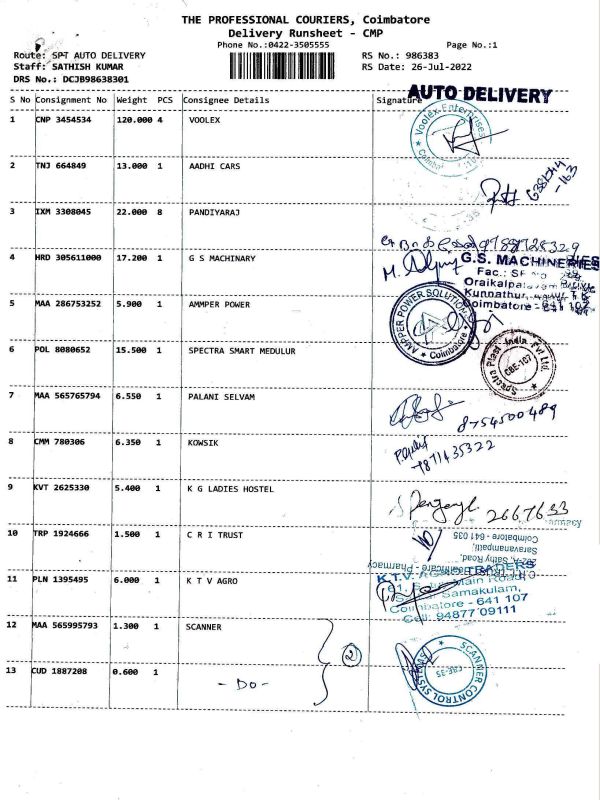 THE PROFESSIONAL COURIERS, Coimbatore
Delivery Runsheet - CMP
Phone No.:0422-3505555 Page No.:1
Route: SPT AUTO DELIVERY RS No.: 986383
Staff: SATHISH KUMAR RS Date: 26-Jul-2022
DRS No.: DCJB98638301
S No Consignment No Weight PCS Consignee Details Signature
AUTO DELIVERY
1 CNP 3454534 120.000 4 VOOLEX
Voolex Enterprises
2 TNJ 664849 13.000 1 AADHI CARS
3 IXM 3308045 22.000 8 PANDIYARAJ
4 HRD 305611000 17.200 1 G S MACHINARY
G.S. MACHINERIES
Fac.:
Kunnathur,
Coimbatore - 641 107
5 MAA 286753252 5.900 1 AMMPER POWER
AMPPER POWER SOLUTION
Coimbatore
6 POL 8080652 15.500 1 SPECTRA SMART MEDULUR
Spectra Plast India Pvt Ltd.
CBE-107
7 MAA 565765794 6.550 1 PALANI SELVAM
8754500489
8 CMM 780306 6.350 1 KOWSIK
9 KVT 2625330 5.400 1 K G LADIES HOSTEL
2667633
10 TRP 1924666 1.500 1 C R I TRUST
Saravanampatti,
Coimbatore - 641 035
11 PLN 1395495 6.000 1 K T V AGRO
K.T.V. AGRO TRADERS
Main Road,
Samakulam,
Coimbatore - 641 107
Cell: 94877 09111
12 MAA 565995793 1.300 1 SCANNER
2
SCANNER CONTROL SYSTEMS
CBE-35
13 CUD 1887208 0.600 1 - DO -